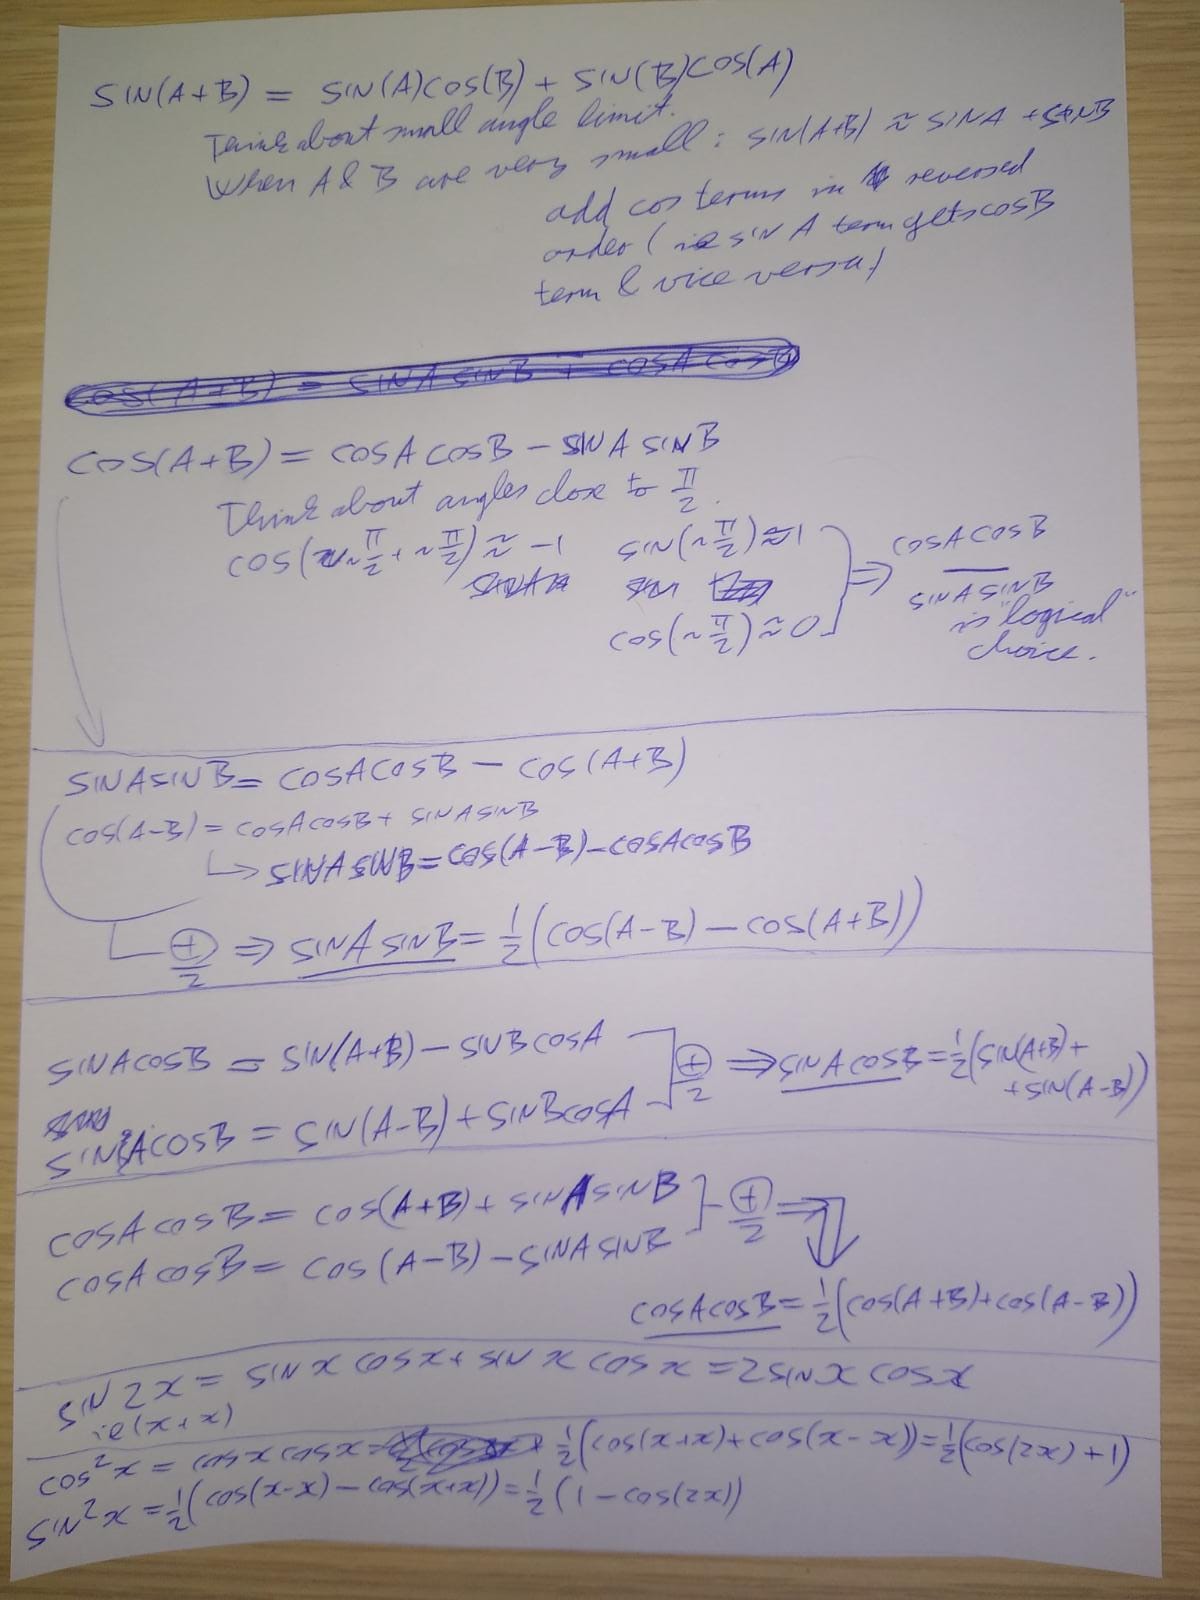 SIN(A+B) = SIN(A)COS(B) + SIN(B)COS(A)
Think about small angle limit.
When A & B are very small: SIN(A+B) ≈ SINA + SINB
add cos terms in reversed
order (ie SIN A term gets cosB
term & vice versa)
COS(A+B) = SINA SINB + COSA COSB
COS(A+B) = COSA COSB - SINA SINB
Think about angles close to π/2.
COS(~π/2 + ~π/2) ≈ -1 SIN(~π/2) ≈ 1
COS(~π/2) ≈ 0
⇒ COSA COSB
—
SINA SINB
is "logical"
choice.
SINA SINB = COSA COSB - COS(A+B)
COS(A-B) = COSA COSB + SINA SINB
↳ SINA SINB = COS(A-B) - COSA COSB
⊕/2 ⇒ SINA SINB = 1/2(COS(A-B) - COS(A+B))
SINA COSB = SIN(A+B) - SINB COSA
SINA COSB = SIN(A-B) + SINB COSA
⊕/2 ⇒ SINA COSB = 1/2(SIN(A+B) +
+ SIN(A-B))
COSA COSB = COS(A+B) + SINA SINB
COSA COSB = COS(A-B) - SINA SINB
⊕/2 ⇒
COSA COSB = 1/2(COS(A+B) + COS(A-B))
SIN 2x = SIN x COS x + SIN x COS x = 2 SIN x COS x
ie (x+x)
COS²x = COS x COS x = 1/2(COS(x+x) + COS(x-x)) = 1/2(COS(2x) + 1)
SIN²x = 1/2(COS(x-x) - COS(x+x)) = 1/2(1 - COS(2x))